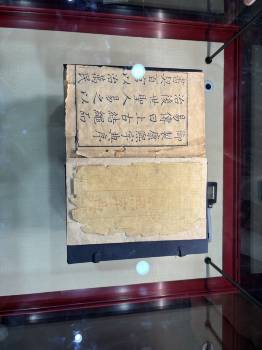 御製康熙字典序
易傳曰上古結繩而
治後世聖人易之以
書契百官以治萬民